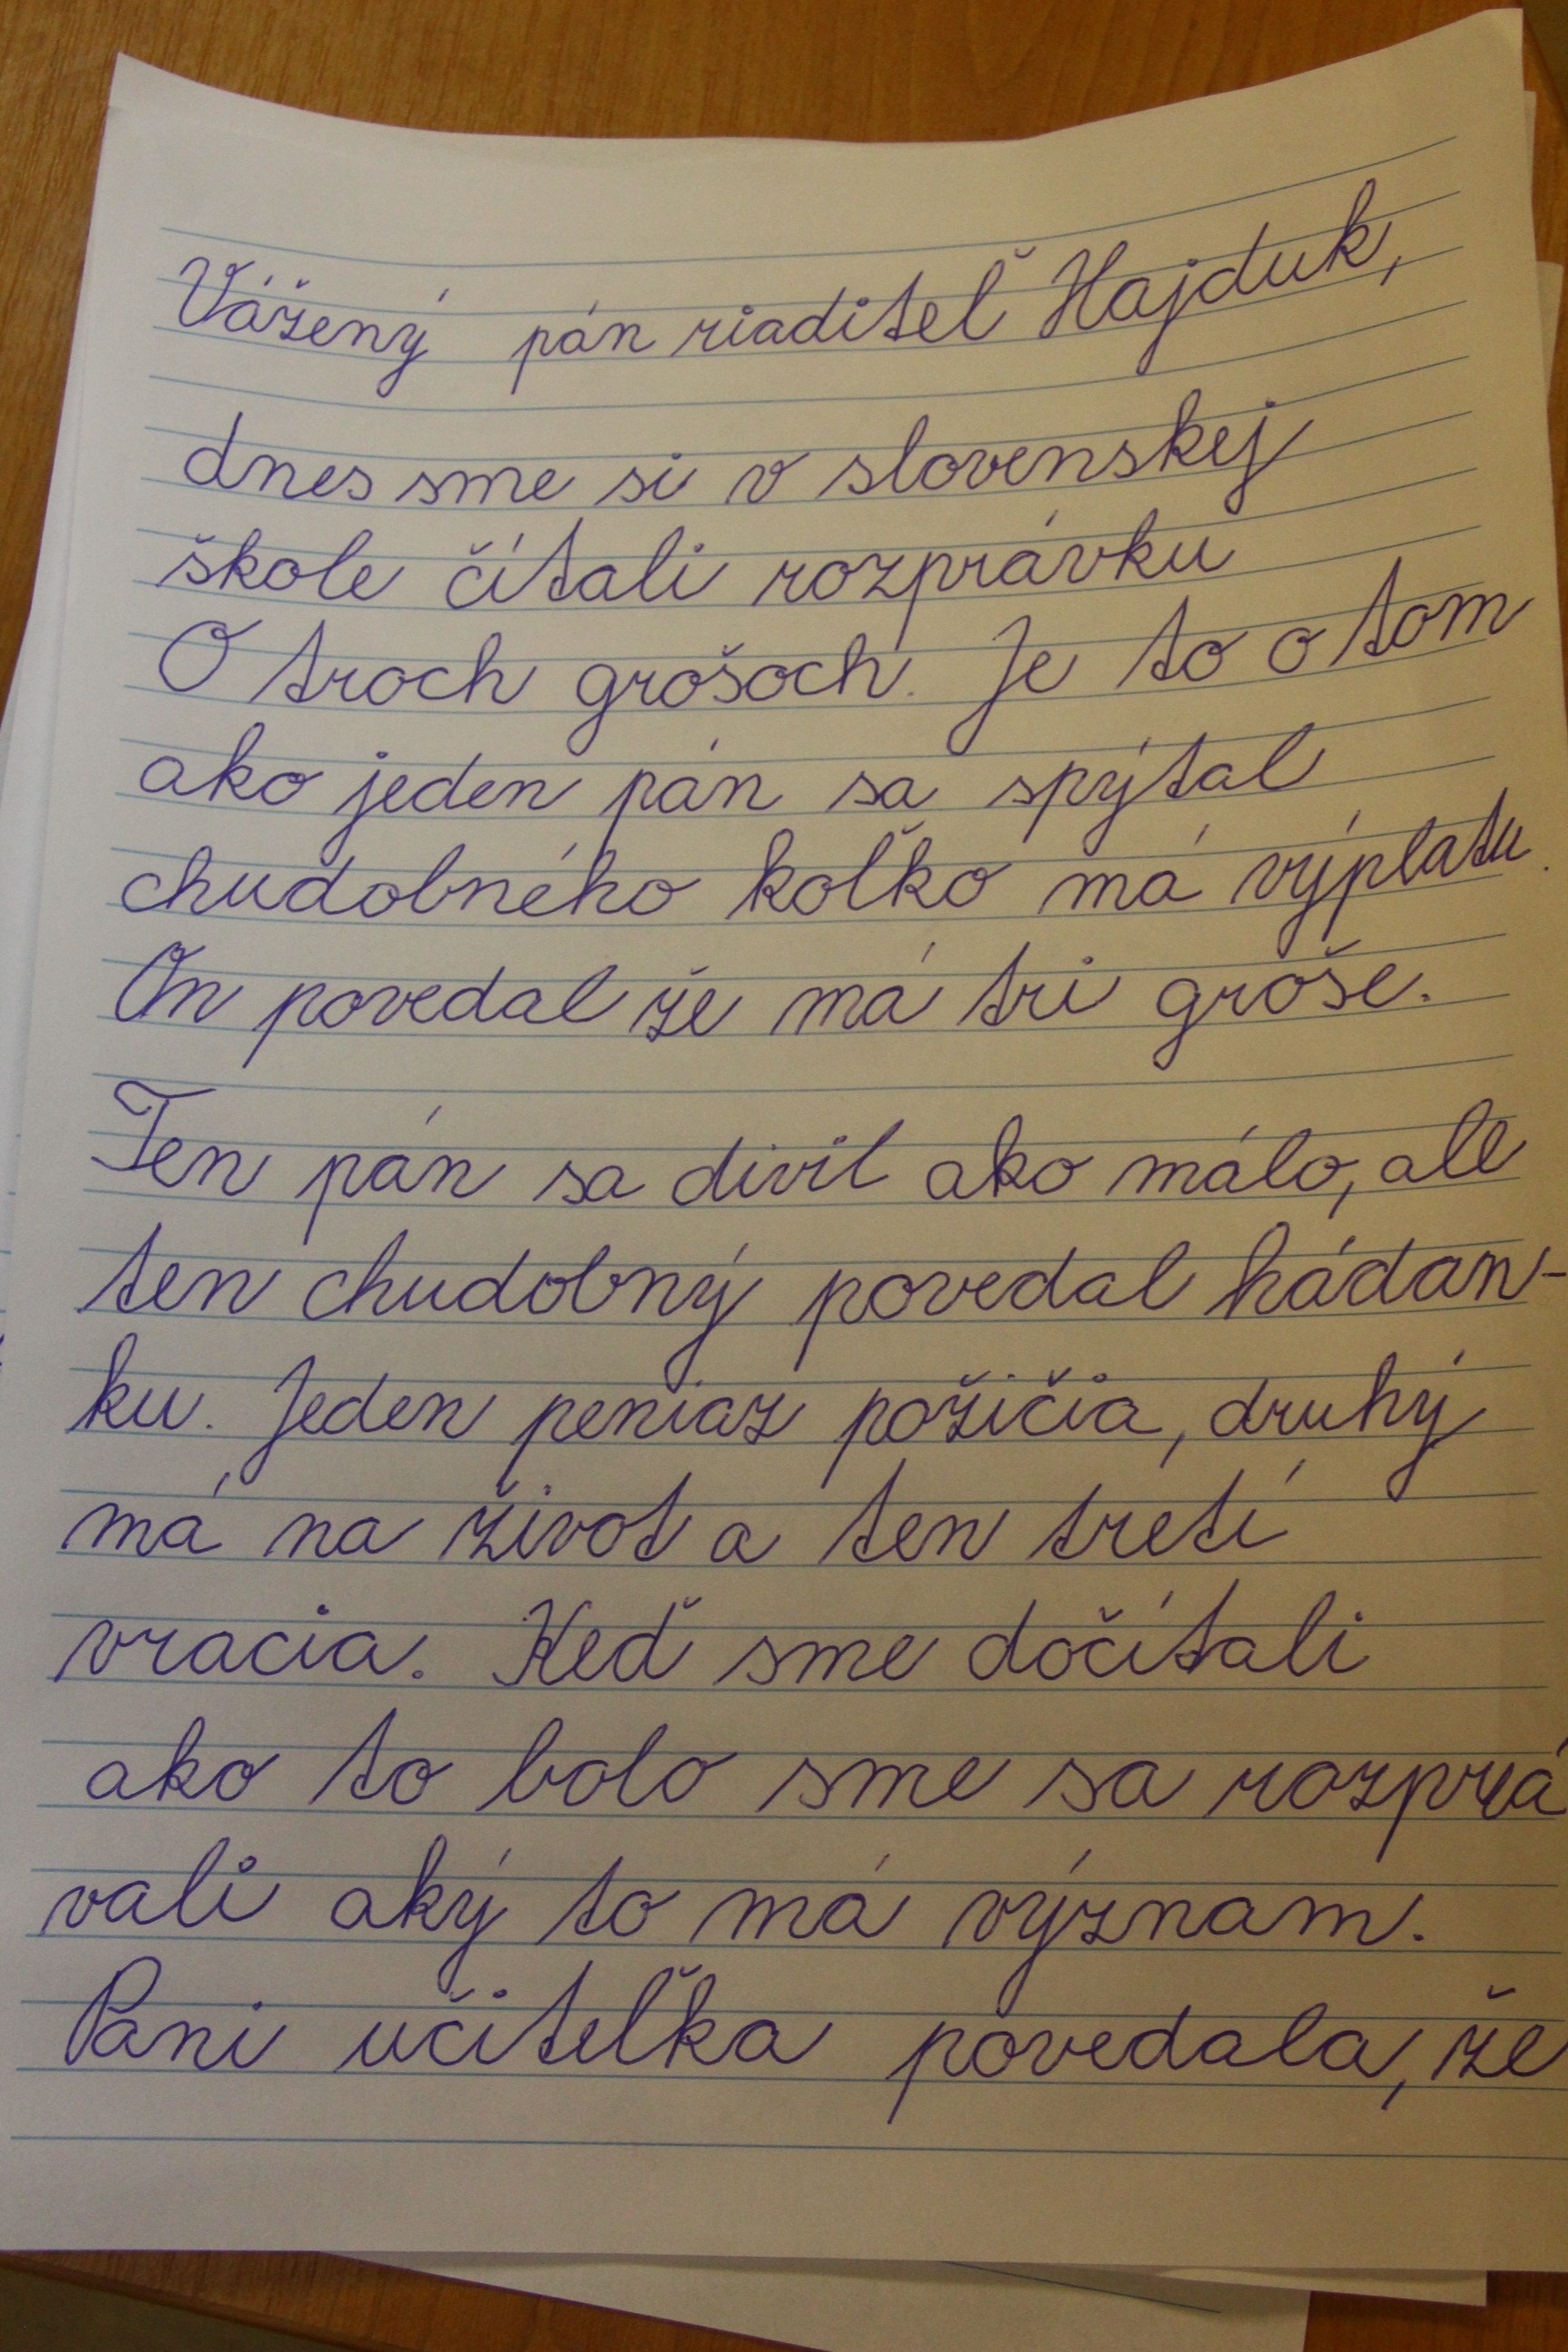 Vážený pán riaditeľ Hajduk,
dnes sme si v slovenskej
škole čítali rozprávku
O troch grošoch. Je to o tom
ako jeden pán sa spýtal
chudobného koľko má výplatu.
On povedal že má tri groše.
Ten pán sa divil ako málo, ale
ten chudobný povedal hádan-
ku. Jeden peniaz požičia, druhý
má na život a ten tretí
vracia. Keď sme dočítali
ako to bolo sme sa rozprá
vali aký to má význam.
Pani učiteľka povedala, že